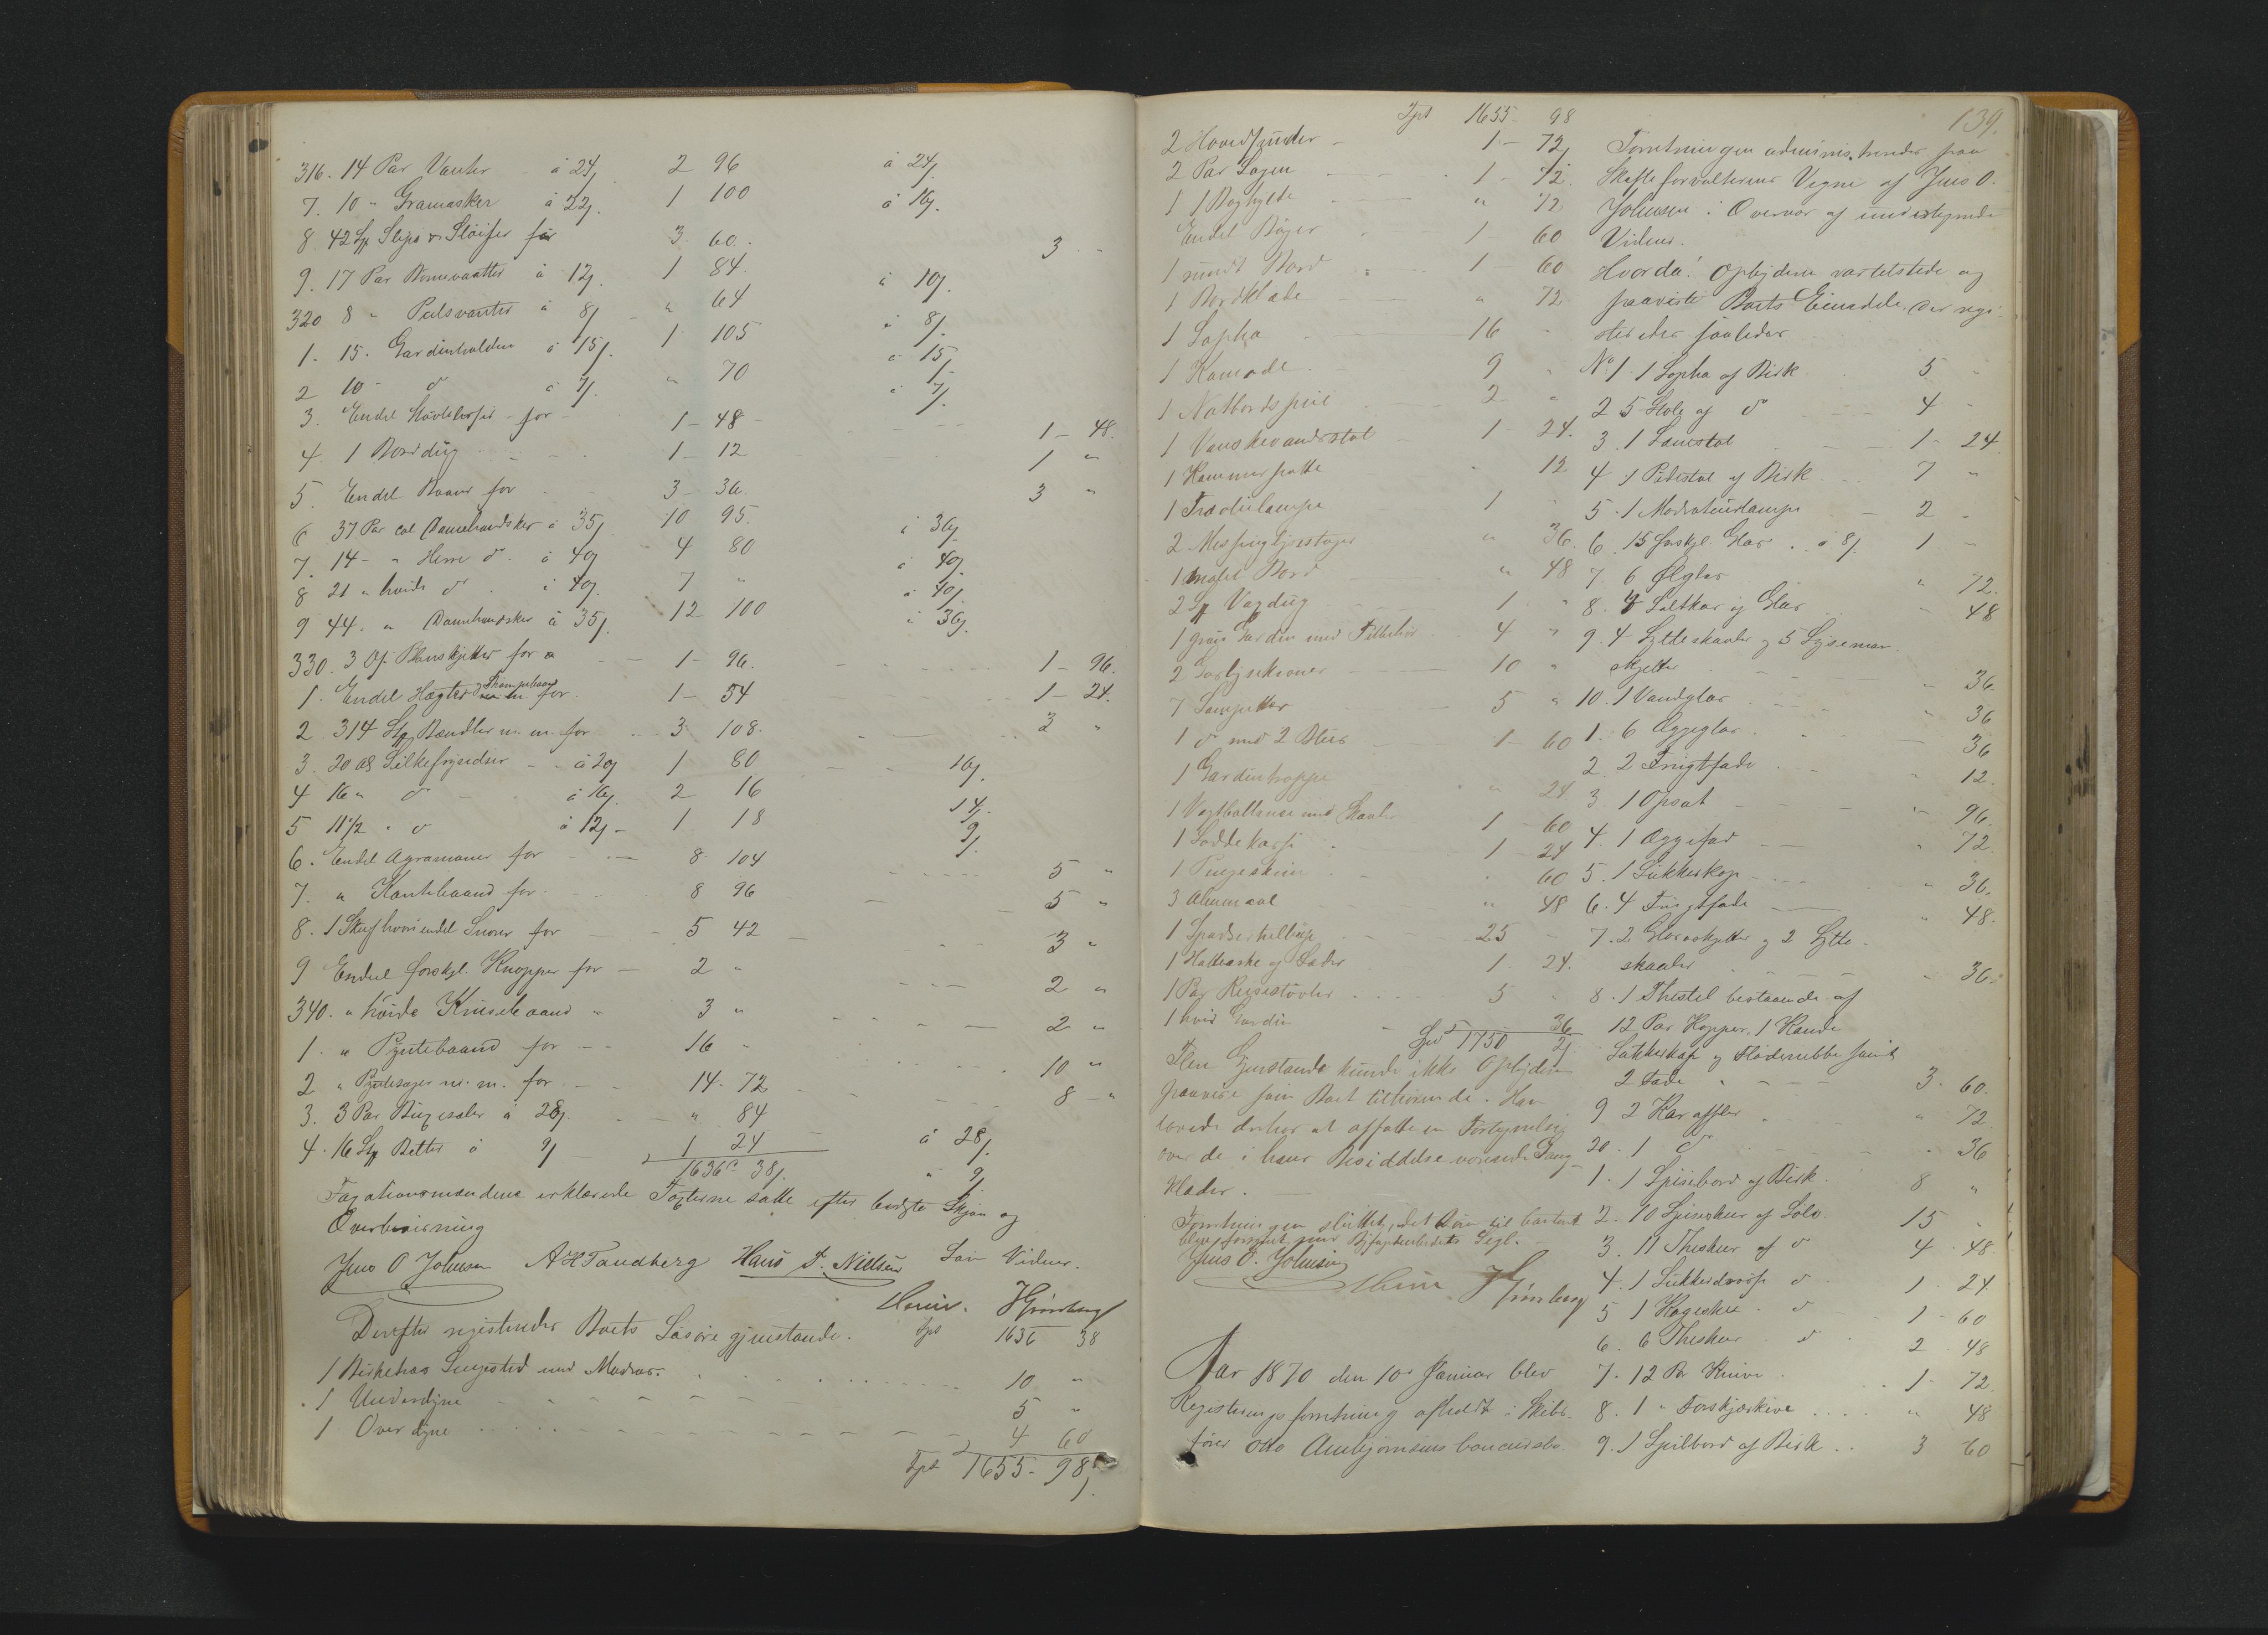 316. 14 Par Vanter à 24 2 96 à 24
7. 10 " Gramasker à 22 1 100 à 16
8 42 St Slips & Sløifer for 3 60. 3 "
9. 17 Par Bomevantter à 12 1 84. à 10
320 8 " Pulsvanter à 8 " 64 à 8
1. 15. Gardinholdere à 15 1 105 à 15
2 10 " d° à 7 " 70 à 7
3. Endel for 1 - 48 1 - 48.
4 1 Borddug 1 - 12 1 "
5. Endel for 3 - 36. 3 "
6 37 Par Damehandsker à 35 10 95. à 36
7. 14 " Herre d° à 40 4 80 à 40
8 21 " hvide d° à 40 7 " à 40
9 44. " Damehandsker à 35 12 100 à 36
330. 3 for 1 - 96. 1 - 96.
1. Endel Hægter for 1 - 54 1 - 24.
2. 314 St Bændler m. m. for 3 108. 3 "
3. 20 Al Silkefryndser à 20 1 80 16
4 16 " d° à 16 2 16 14
5 11 1/2 " d° à 12 1 18 9
6. Endel Agramaner for 8 104 5 "
7. " Kantebaand for 8 96 5 "
8. 1 Skuf hvori endel Snorer for 5 42 3 "
9 Endel forskjl. Knapper for 2 " 2 "
340. " hvide Krusebaand " 3 " 2 "
1. " Pyntebaand for 16 " 10 "
2 " Pyntesager m. m. for 14. 72 8 - "
3. 3 Par à 28 " 84 à 28
4. 16 St Belter à 9 1 24 " 9
1636 38
Taxationsmændene erklærede Taxterne satte efter bedste Skjøn og
Overbeviisning
Jens O Johnsen A H Tandberg Hans F. Nielsen Som Vidner.
Derefter registreredes Boets Løsøregjenstande. Tpt 1636 38
1 Birketræs Sengested med Madras. 10 "
1 Underdyne 5 "
1 Overdyne 4 60
Tpt 1655 - 98
Tpt 1655 - 98
2 Hovedpuder 1 - 72
2 Par Lagen 1 - 72.
1 Boghylde " 72
Endel Bøger 1 - 60
1 rundt Bord 1 - 60
1 Bordklæde " 72
1 Sopha 16 "
1 Komode 9 "
1 Natbordspeil 2 "
1 Vaskevandsstol 1 - 24.
1 Kammerpotte " 12
1 1 "
2 Messinglysestager " 36.
1 malet Bord " 48
2 St Voxdug 1 "
1 grøn Gardin med Tilbehør 4 "
2 Gaslysekroner 10 "
7 Lampetter 5 "
1 d° med 2 Blus 1 - 60
1 Gardintrappe " 24
1 Vægtballance med Skaaler 1 - 60
1 Loddekasse 1 - 24
1 Pengeskrin " 60
3 Alenmaal " 48
1 25 "
1 Hatteæske og Læder 1 - 24.
1 Par Reisestøvler 5 "
1 hvid Gardin " 36
Spd 1750 2
Flere Gjenstande kunde ikke Opbyderen
paavise som Boet tilhørende. Han
lovede derhos at affatte en Fortegnelse
over de i hans Besiddelse værende Gang
klæder.
Forretningen sluttet,
Jens O. Johnsen
Aar 1870 den 10de Januar blev
Registreringsforretning afholdt i Skibs-
fører Otto Ambjørnsens Concursbo
139.
Forretningen administreredes paa
Skifteforvalterens Vegne af Jens O.
Johnsen i Overvær af undertegnede
Vidner.
Hvorda! Opbyderen var tilstede og
paaviste Boets Eiendele, der regi-
streredes saaledes
No 1. 1 Sopha af Birk 5 "
2 5 Stole af d° 4 "
3. 1 Lænestol 1 - 24
4 1 Pidestal af Birk 7 "
5. 1 Moderateurlampe 2 "
6. 15 forskjl. Glas à 8 1 "
7. 6 Ølglas " 72.
8. 4 Saltkar af Glas " 48
9. 4 Sylteskaaler og 5 Lyseman-
skjetter " 36
10. 1 Vandglas " 36
1. 6 Æggeglas " 36
2 2 Frugtfade " 12.
3 1 Opsats " 96.
4. 1 Æggefad " 72
5. 1 Sukkerkop " 36.
6. 4 Frugtfade " 48.
7. 2 Glasasjetter og 2 Sylte-
skaaler " 36.
8. 1 Thestel bestaaende af
12 Par Kopper, 1 Kande
Sukkerkop og Flødenebbe samt
2 Fade 3. 60.
9 2 Karafler " 72
20. 1 d° " 36
1. 1 Spisebord af Birk 8 "
2. 10 Spiseskeer af Sølv 15 "
3. 11 Theskeer af d° 4 48
4. 1 Sukkerdaase d° 1 24
5 1 Kageskee d° 1 - 60
6. 6 Theskeer d° 2 48
7. 12 Par Knive 1 - 72.
8. 1 " Forskjærknive " 48
9. 1 Spilbord af Birk 3 60